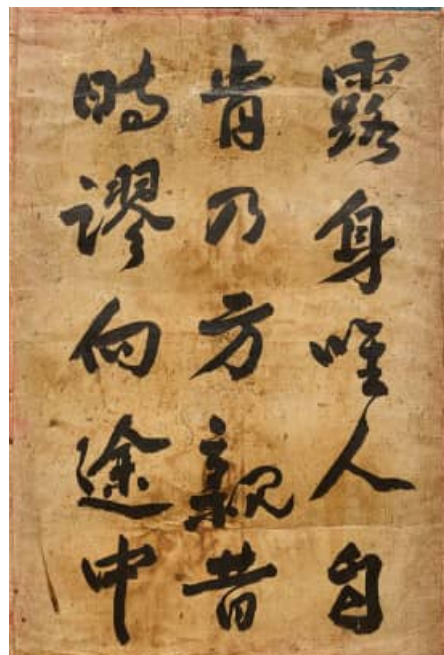 露身唯人自
肯乃方親昔
時謬向途中